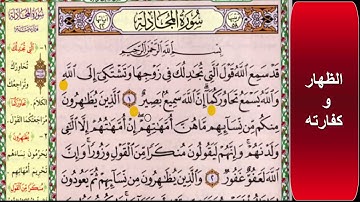 سُورَةُ المُجَادلَةِ
بِسْمِ اللَّهِ الرَّحْمَٰنِ الرَّحِيمِ
قَدْ سَمِعَ اللَّهُ قَوْلَ الَّتِي تُجَادِلُكَ فِي زَوْجِهَا وَتَشْتَكِي إِلَى اللَّهِ
وَاللَّهُ يَسْمَعُ تَحَاوُرَكُمَا إِنَّ اللَّهَ سَمِيعٌ بَصِيرٌ ١ الَّذِينَ يُظَاهِرُونَ
مِنكُم مِّن نِّسَائِهِم مَّا هُنَّ أُمَّهَاتِهِمْ إِنْ أُمَّهَاتُهُمْ إِلَّا الَّٰئِي
وَلَدْنَهُمْ وَإِنَّهُمْ لَيَقُولُونَ مُنكَرًا مِّنَ الْقَوْلِ وَزُورًا وَإِنَّ
اللَّهَ لَعَفُوٌّ غَفُورٌ ٢ وَالَّذِينَ يُظَاهِرُونَ مِن نِّسَائِهِمْ ثُمَّ يَعُودُونَ
الظهار
و
كفارته